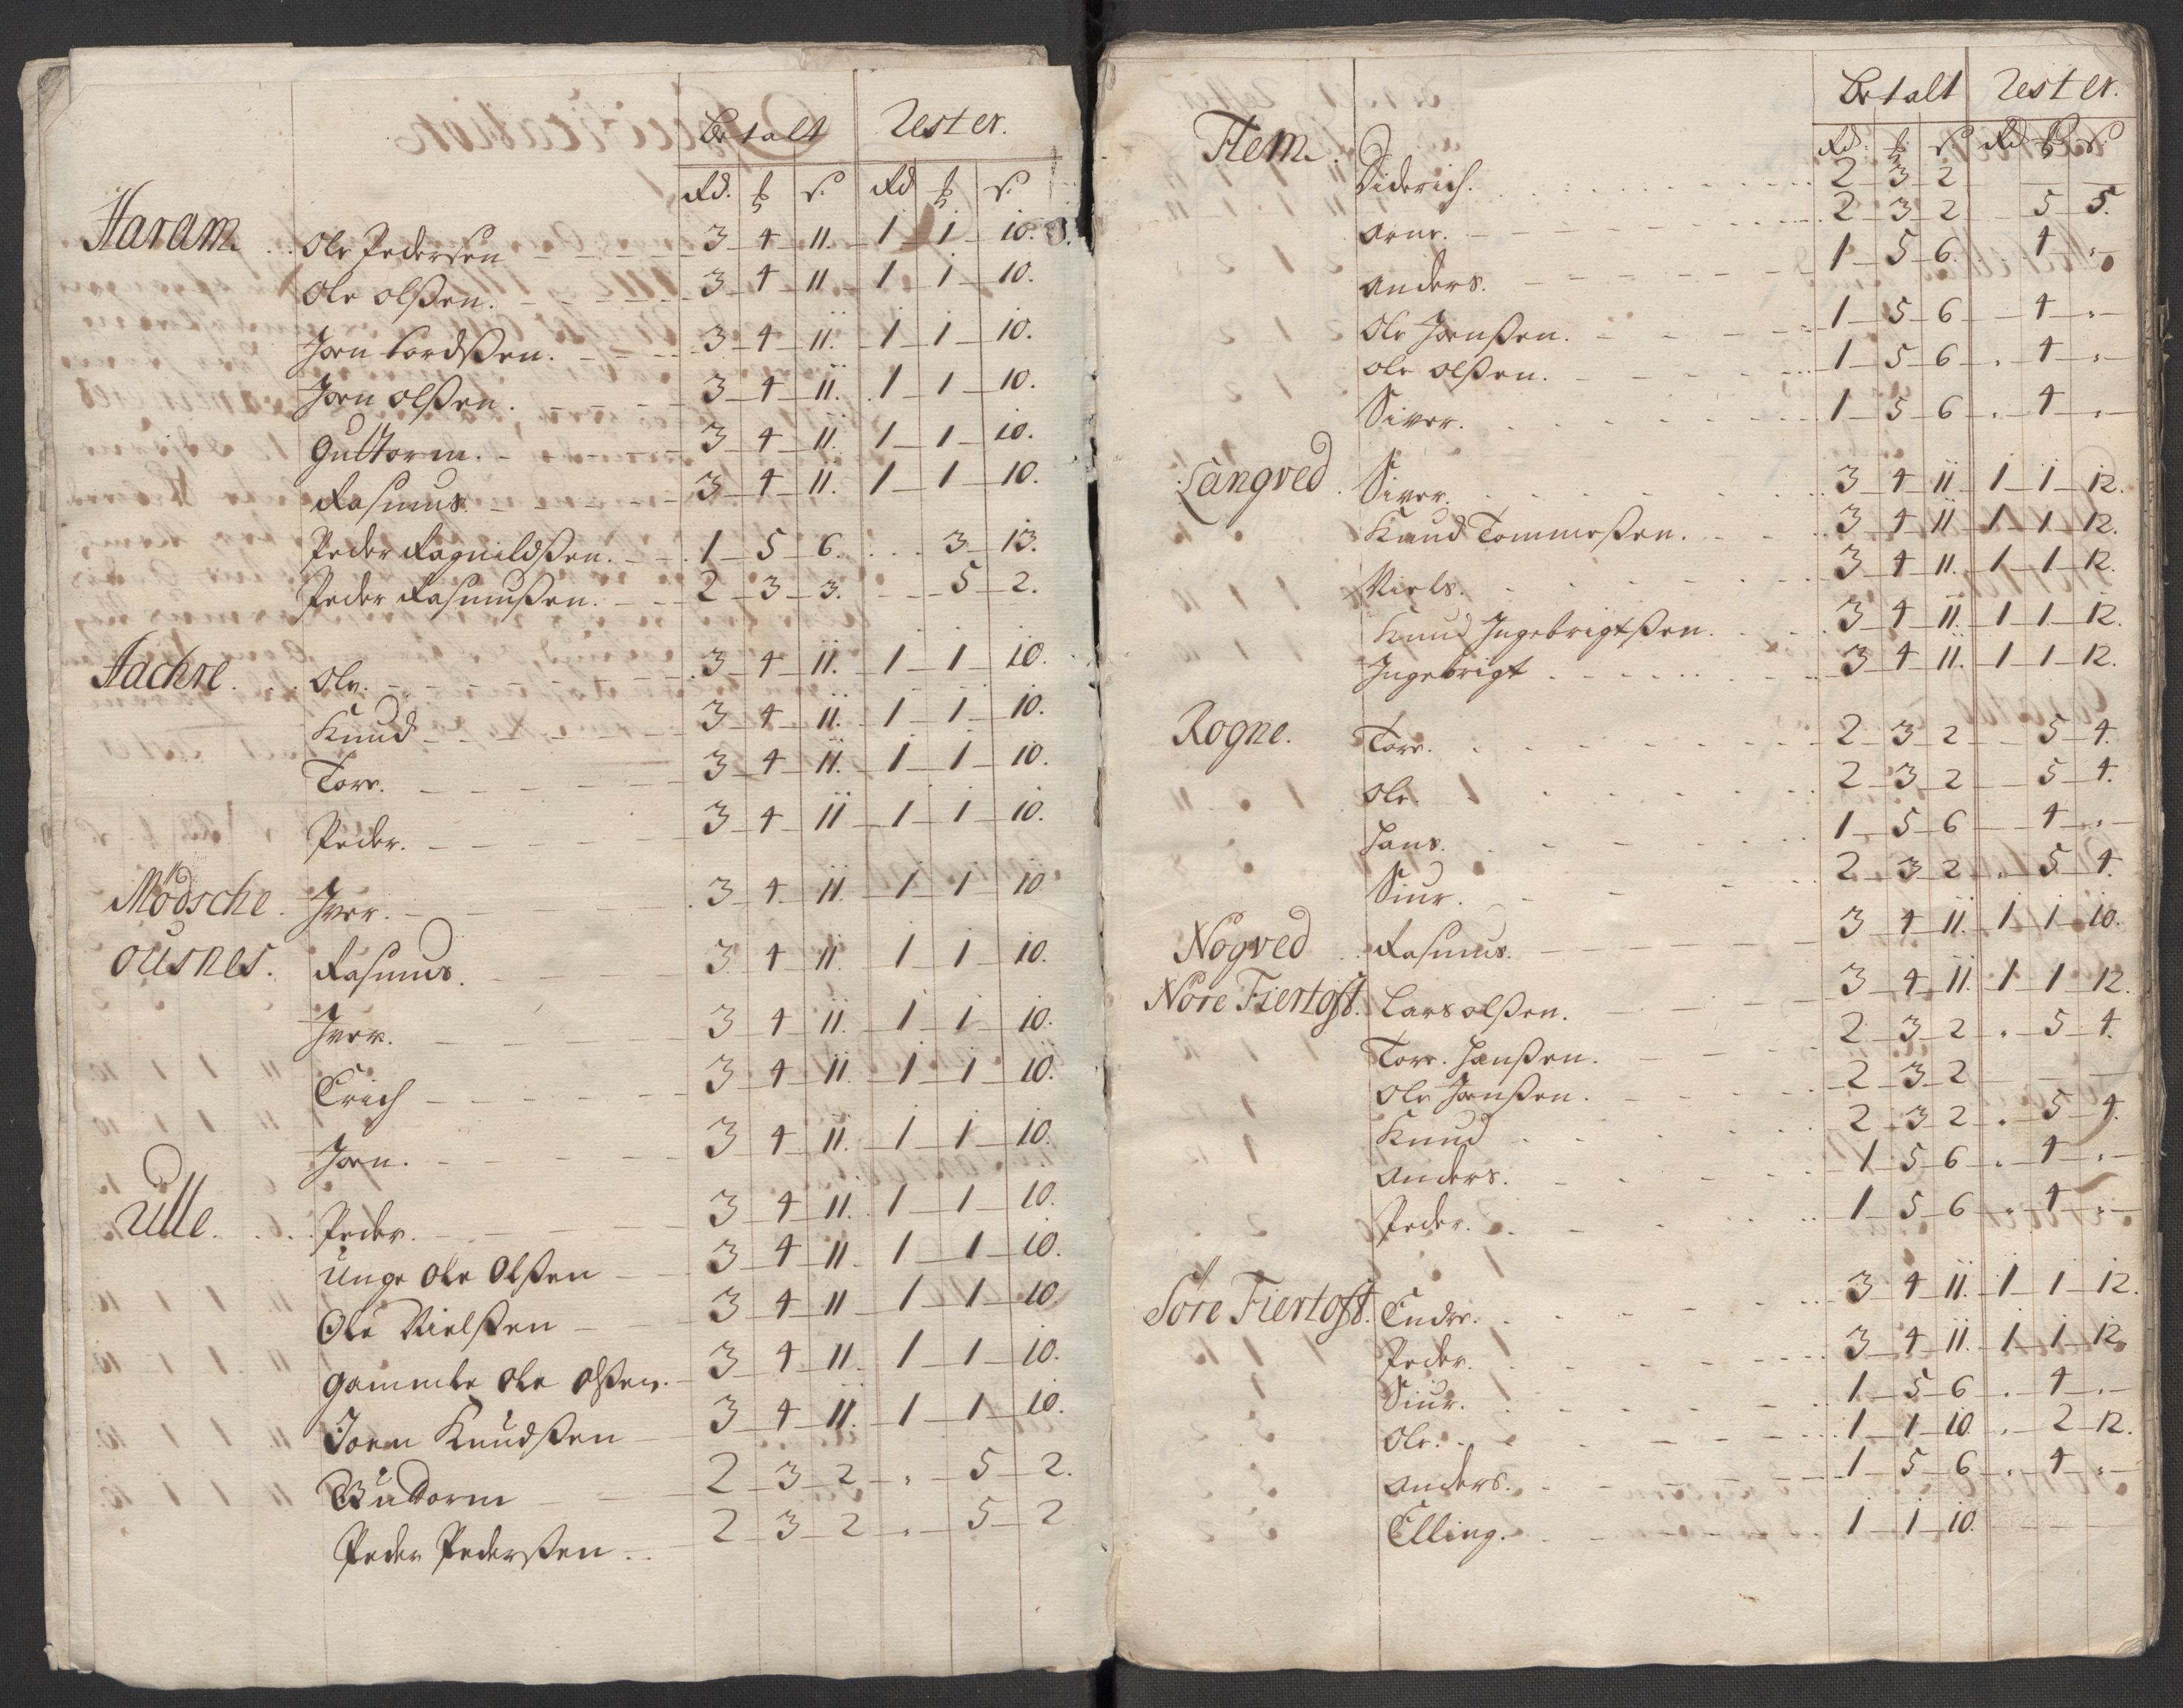 Betalt Rester.
Rd. ß s. Rd ß s.
Haram. Ole Pedersen 3 4 11. 1 1 10.
Ole olßen. 3 4 11 1 1 10.
Jon Lordßen. 3 4 11. 1 1 10.
Jon olßen. 3 4 11. 1 1 10.
Guttorm. 3 4 11. 1 1 10.
Rasmus. 3 4 11. 1 1 10.
Peder Ragnildßen. 1 5 6. 3 13.
Peder Rasmußen. 2 3 3. 5 2.
Hachre. Ole. 3 4 11. 1 1 10.
Knud 3 4 11. 1 1 10.
Tore. 3 4 11. 1 1 10.
Peder. 3 4 11 1 1 10.
Mödsche. Iver. 3 4 11. 1 1 10
ousnes. Rasmus. 3 4 11 1 1 10.
Iver. 3 4 11. 1 1 10.
Erich 3 4 11. 1 1 10.
Jon. 3 4 11. 1 1 10.
Ulle. Peder. 3 4 11. 1 1 10.
Unge Ole Olßen 3 4 11. 1 1 10.
Ole Nielßen 3 4 11 1 1 10
gammele Ole olßen. 3 4 11. 1 1 10.
Joen Knudßen 3 4 11. 1 1 10.
Guttorm 2 3 2 5 2.
Peder Pederßen. 2 3 2 5 2
Betalt Rester.
Rd. ß s. Rd ß s.
Flem. Diderich. 2 3 2
Arne. 2 3 2 5 5.
Anders. 1 5 6. 4
Ole Jonßen. 1 5 6 4
Ole olßen. 1 5 6 4
Siver. 1 5 6 4
Langved. Siver. 3 4 11 1 1 12.
Knud Tommeßen. 3 4 11 1 1 12.
Niels. 3 4 11. 1 1 12.
Knud Ingebrigtßen. 3 4 11. 1 1 12.
Ingebrigt 3 4 11. 1 1 12.
Rogne. Tore. 2 3 2 5 4.
Ole. 2 3 2 5 4.
Hans. 1 5 6 4
Siur. 2 3 2 5 4.
Nogved Rasmus. 3 4 11. 1 1 10.
Nore Fiertoft. Lars olßen. 3 4 11. 1 1 12.
Tore Hanßen. 2 3 2 5 4.
Ole Jonßen. 2 3 2
Knud 2 3 2 5 4.
Anders. 1 5 6 4
Peder. 1 5 6 4
Söre Fiertoft. Endre. 3 4 11. 1 1 12.
Peder. 3 4 11. 1 1 12
Siur. 1 5 6 4
Ole. 1 1 10 2 12.
Anders. 1 5 6 4
Elling. 1 1 10.